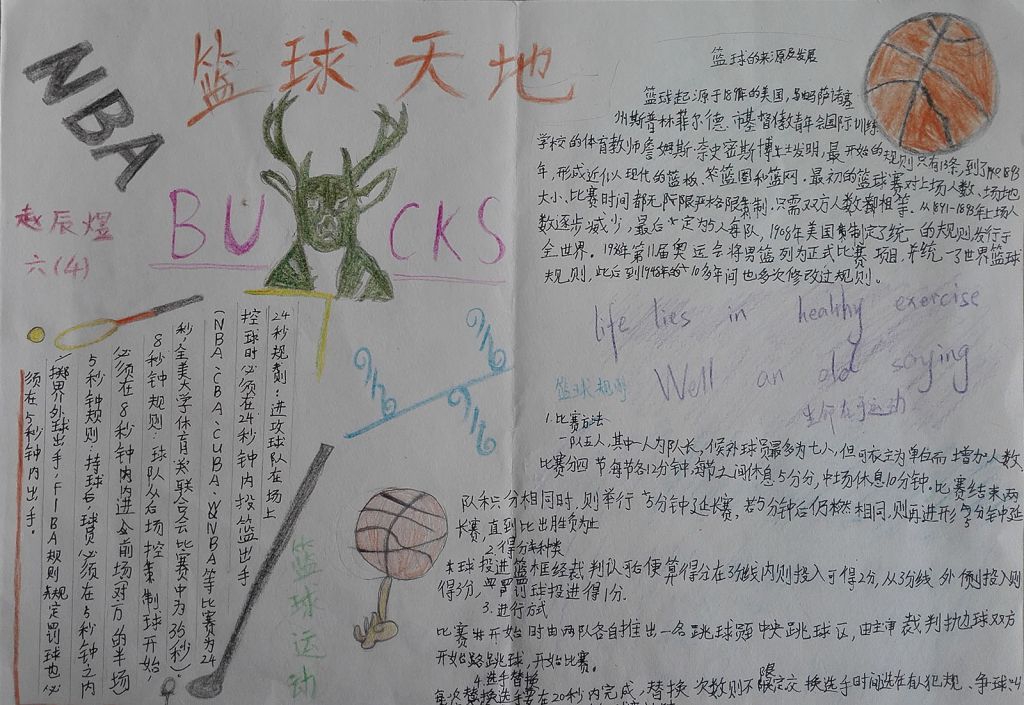 篮球天地
NBA
BUCKS
赵辰煜
六(4)
24秒规则:进攻球队在场上
控球时必须在24秒钟内投篮出手
(NBA、CBA、CUBA、WNBA等比赛为24
秒,全美大学体育联合会比赛中为35秒)。
8秒钟规则:球队从后场控制球开始,
必须在8秒钟内进入前场对方的半场
5秒钟规则:持球后,球员必须在5秒钟之内
掷界外球出手,FIBA规则规定罚球也必
须在5秒钟内出手。
篮球运动
篮球的来源及发展
篮球起源于 的美国,马萨诸塞
州斯普林菲尔德市基督教青年会国际训练
学校的体育教师詹姆斯·奈史密斯博士发明,最开始的规则只有13条,到了1893
年,形成近似现代的篮板、篮圈和篮网。最初的篮球赛对上场人数、场地
大小、比赛时间都无严格限制,只需双方人数相等。从1891-1893年上场人
数逐步减少,最后定为5人每队,1908年美国制定了统一的规则发行于
全世界。1936年第11届奥运会将男篮列为正式比赛项目,并统一了世界篮球
规则,此后到1948年的10多年间也多次修改过规则。
life lies in healthy exercise
Well an old saying
生命在于运动
篮球规则
1.比赛方法
一队五人,其中一人为队长,候补球员最多为七人,但可依主办单位而增加人数
比赛分四节每节各12分钟,每节之间休息5分分,中场休息10分钟。比赛结束两
队积分相同时,则举行5分钟延长赛,若5分钟后仍然相同,则再进行5分钟延
长赛,直到比出胜负为止
2.得分种类
球投进篮框经裁判认可后便算得分在3分线内则投入可得2分,从3分线外侧投入则
得3分,罚球投进得1分.
3.进行方式
比赛开始时由两队各自推出一名跳球员中央跳球区,由主审裁判抛球双方
开始跳球,开始比赛。
4.选手替换
每次替换选手要在20秒内完成,替换次数则不限定交换选手时间选在有人犯规、争球